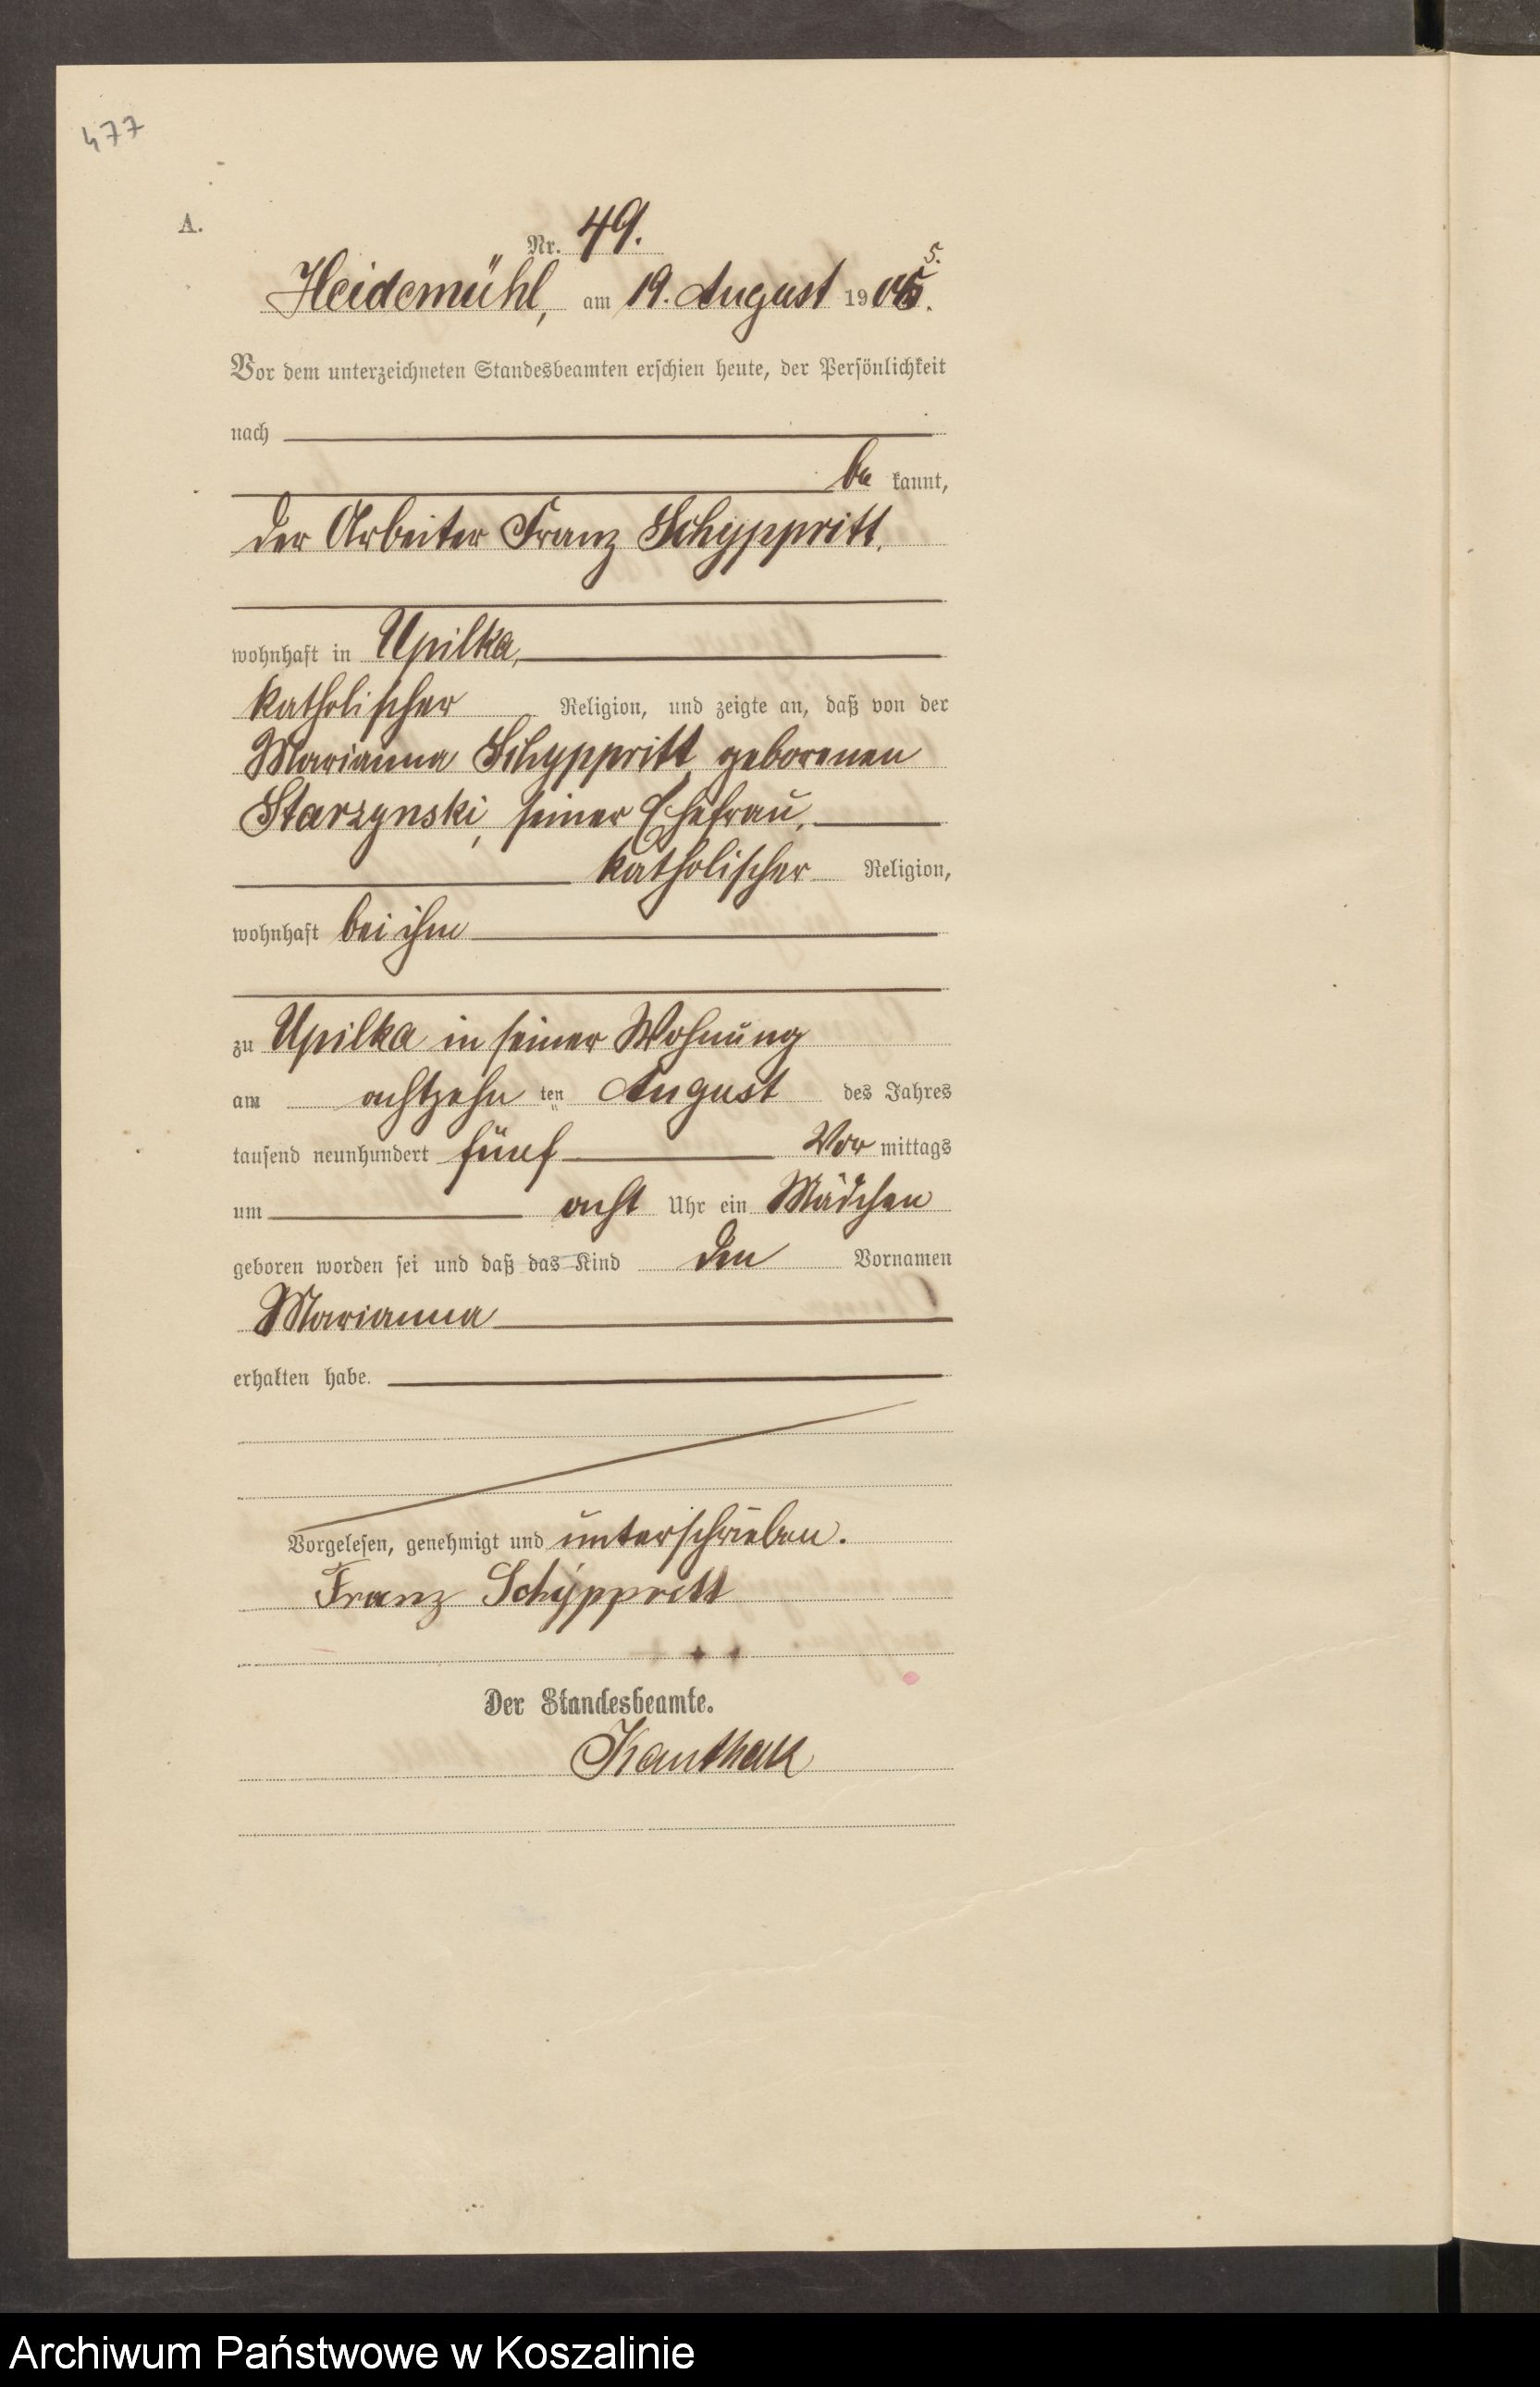 477
A.
Nr. 49.
5.
Heidemühl, am 19. August 1905.
Vor dem unterzeichneten Standesbeamten erschien heute, der Persönlichkeit
nach
be kannt,
der Arbeiter Franz Schyppritt,
wohnhaft in Upilka,
katholischer Religion, und zeigte an, daß von der
Marianna Schyppritt, geborenen
Starzynski, seiner Ehefrau,
katholischer Religion,
wohnhaft bei ihm
zu Upilka in seiner Wohnung
am achtzehn ten August des Jahres
tausend neunhundert fünf Vor mittags
um acht Uhr ein Mädchen
geboren worden sei und daß das Kind den Vornamen
Marianna
erhalten habe.
Vorgelesen, genehmigt und unterschrieben.
Franz Schyppritt
Der Standesbeamte.
Kanthak
Archiwum Państwowe w Koszalinie